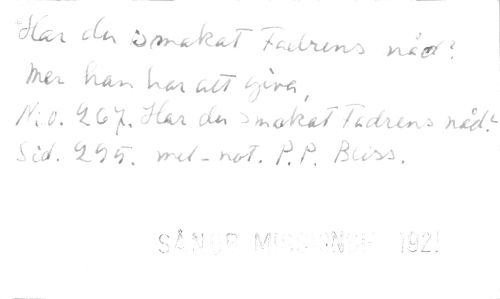 Har du smakat Fadrens nåd?
mer han har att giva,
N:o. 267. Har du smakat Fadrens nåd?
Sid. 295. mel-not. P.P. Bliss.
SÅNGR MISSIONSR 192